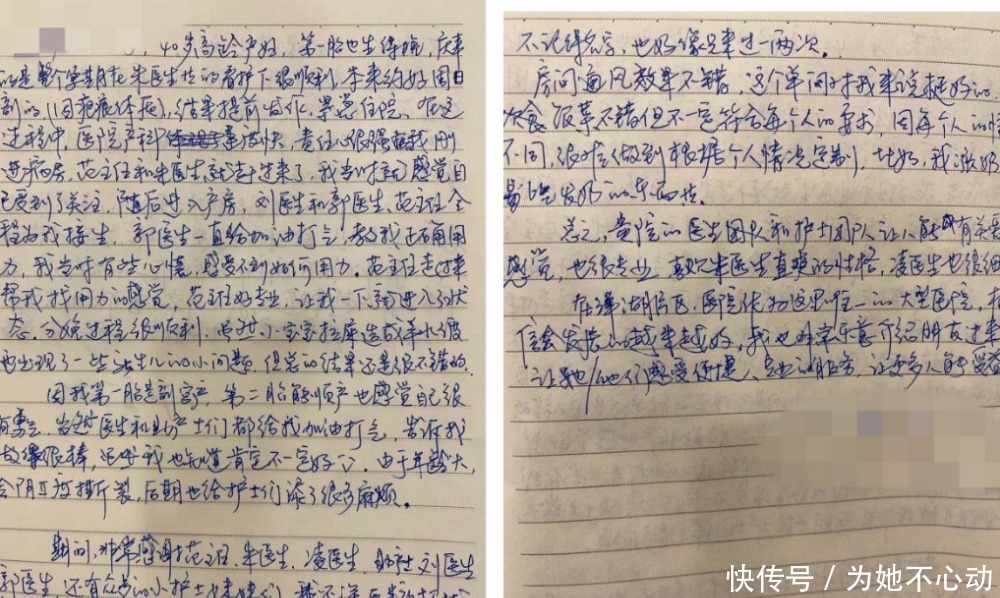 40岁高龄产妇，第一胎也生得晚，庆幸
的是整个孕期在朱医生的看护下很顺利，本来约好周日
剖的，(因疤痕体质)，结果提前发作，紧急住院。在这
过程中，医院产科速度快，责任心很强，我刚
进病房，范主任和朱医生就过来了，我当时就感觉自
己受到了关注，随后进入产房，刘医生和郭医生、范主任全
程为我接生，郭医生一直给加油打气，教我正确用
力，我当时有些心慌，感受不到如何用力。范主任走过来
帮我找用力的感觉，范主任好专业，让我一下就进入状
态。分娩过程很顺利，虽然小宝宝拉屎造成羊水
也出现了一些新生儿的小问题，但总的结果还是很不错的。
因我第一胎是剖宫产，第二胎能顺产也感觉自己很
有勇气，当时医生和助产士们都给我加油打气，告诉我
做得很棒，虽然我也知道肯定不一定好。由于年龄大，
会阴II度撕裂，后期也给护士们添了很多麻烦。
期间，非常感谢范主任、朱医生、凌医生、助产士刘医生
郭医生，还有众多的小护士
不记得名字，也好像只来过一两次。
房间通风效果不错，这个单间对我来说挺好的，
饮食饭菜不错但不一定符合每个人的要求，因每个人的情
不同，很难做到根据个人情况定制，比如，我涨奶
易发奶的东西。
总之，贵院的医生团队和护士团队让人能感有亲
感觉，也很专业，喜欢朱医生直爽的性格，凌医生也很细
在泽湖片区，医院作为这里唯一的大型医院，
信会发展的越来越好，我也非常乐意介绍朋友过来
让她/他们感受便捷、专业的服务，让更多人能受益
快传号 / 为她不心动